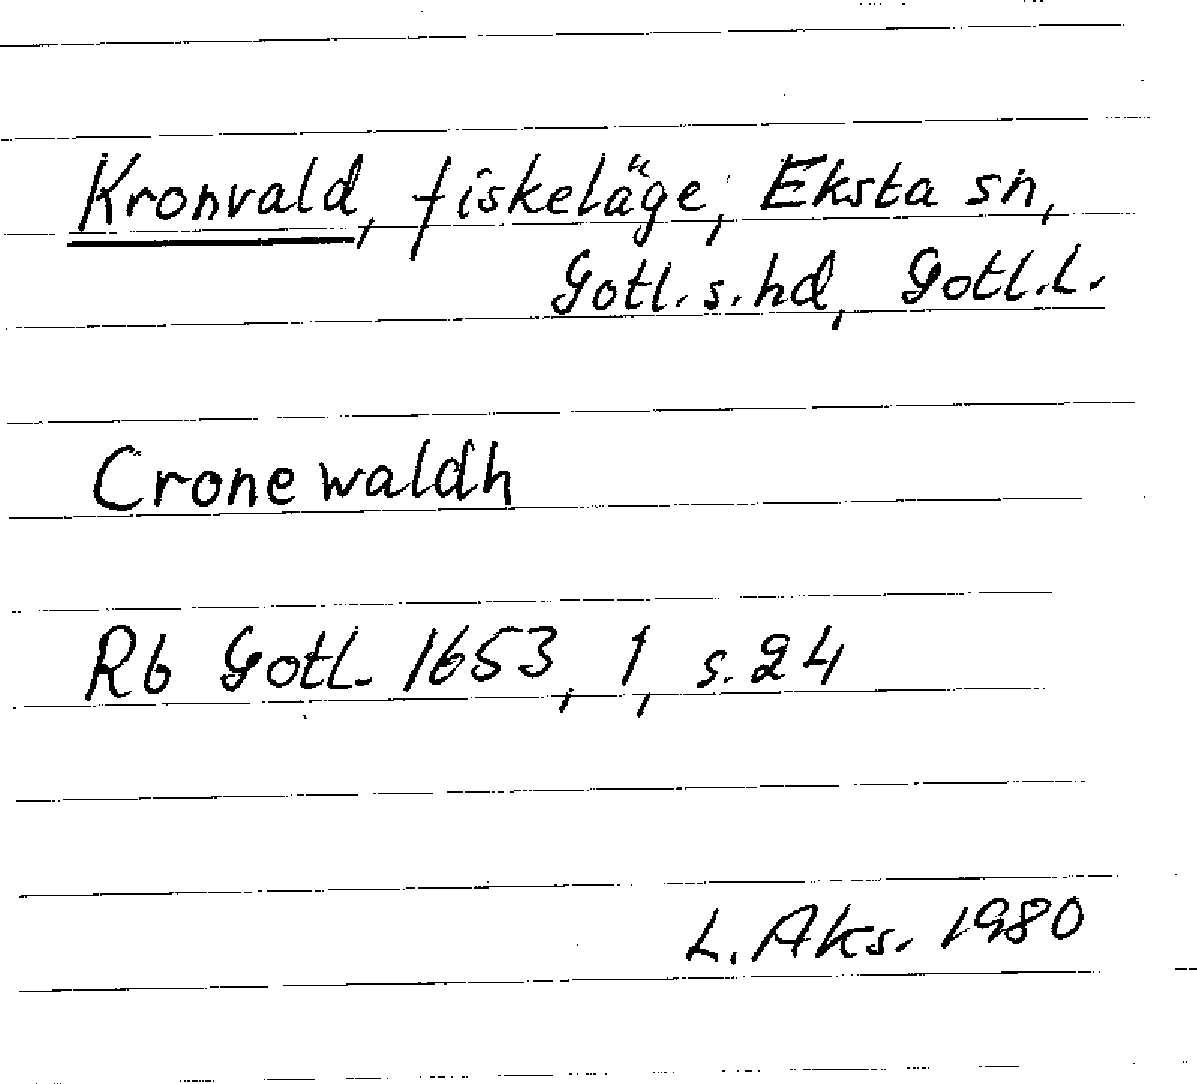 Kronvald, fiskeläge, Eksta sn,
Gotl. s. hd, Gotl. L.
Cronewaldh
Rb Gotl. 1653, 1, s. 24
L. Aks. 1980